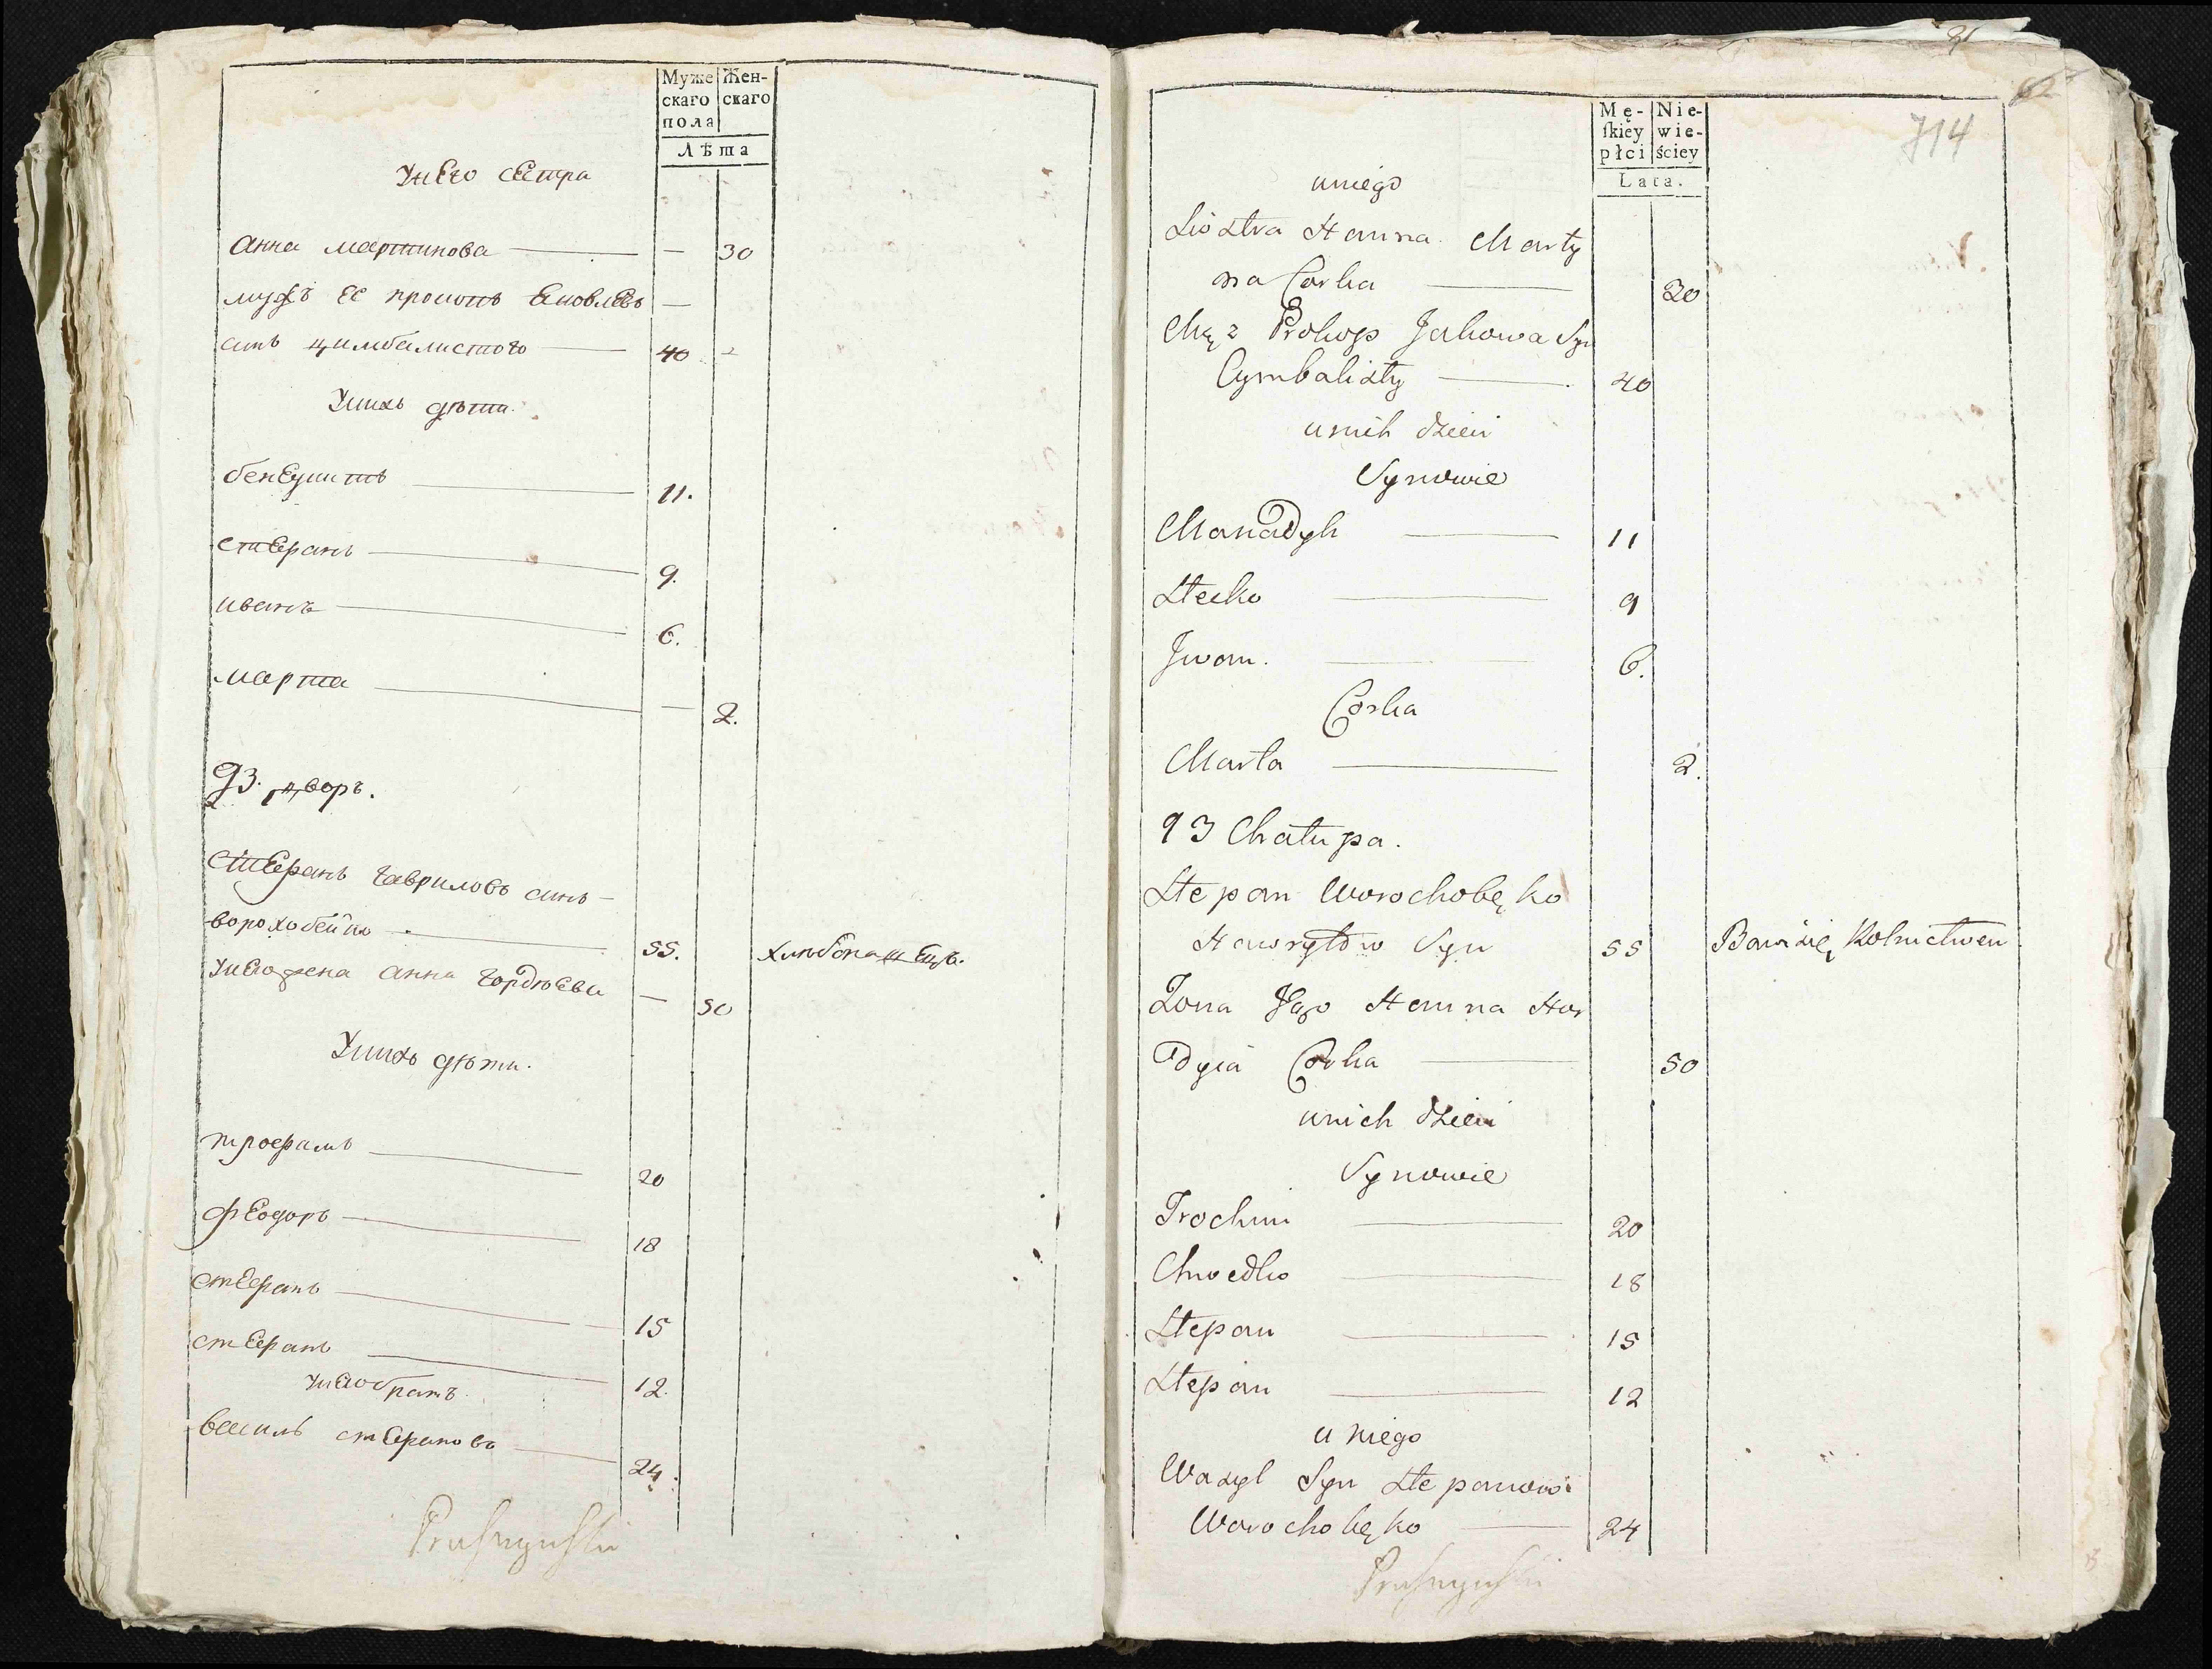 Муже
скаго
пола
Жен-
скаго
Лѣта
Унего сестра
анна мартинова — — 30
мужъ ее прокопъ Ековлевъ —
синъ цимбалистого — 40
Унихъ дѣти.
бенедиктъ — 11.
стефанъ — 9.
иванъ — 6.
марта — — 2.
93. дворъ.
Стефанъ гавриловъ синъ —
ворохобейко — 55. хлѣбопашецъ.
Унего жена анна гордюева — 50
Унихъ дѣти.
трофимъ — 20
феодоръ — 18
стефанъ — 15
стефанъ — 12.
Унего братъ
василь стефановъ — 24.
31
62
714
Mę-
ſkiey
płci
Nie-
wie-
ściey
Lata.
uniego
Siostra Hanna Marty
na Corka — 30
Mąz Prokop Jakowa Syn
Cymbalisty — 40
unich dzieci
Synowie
Manadyk — 11
Stecko — 9
Jwan. — 6.
Corka
Marta — 2.
93 Chałupa.
Stepan Worochobęko
Hawryłow Syn 55 Bawi się Rolnictwem
Zona Jego Hanna Hor
dyia Corka — 50
unich dzieci
Synowie
Trochim — 20
Chwedko — 18
Stepan — 15
Stepan — 12
u niego
Wasyl Syn Stepanow
Worochobęko — 24